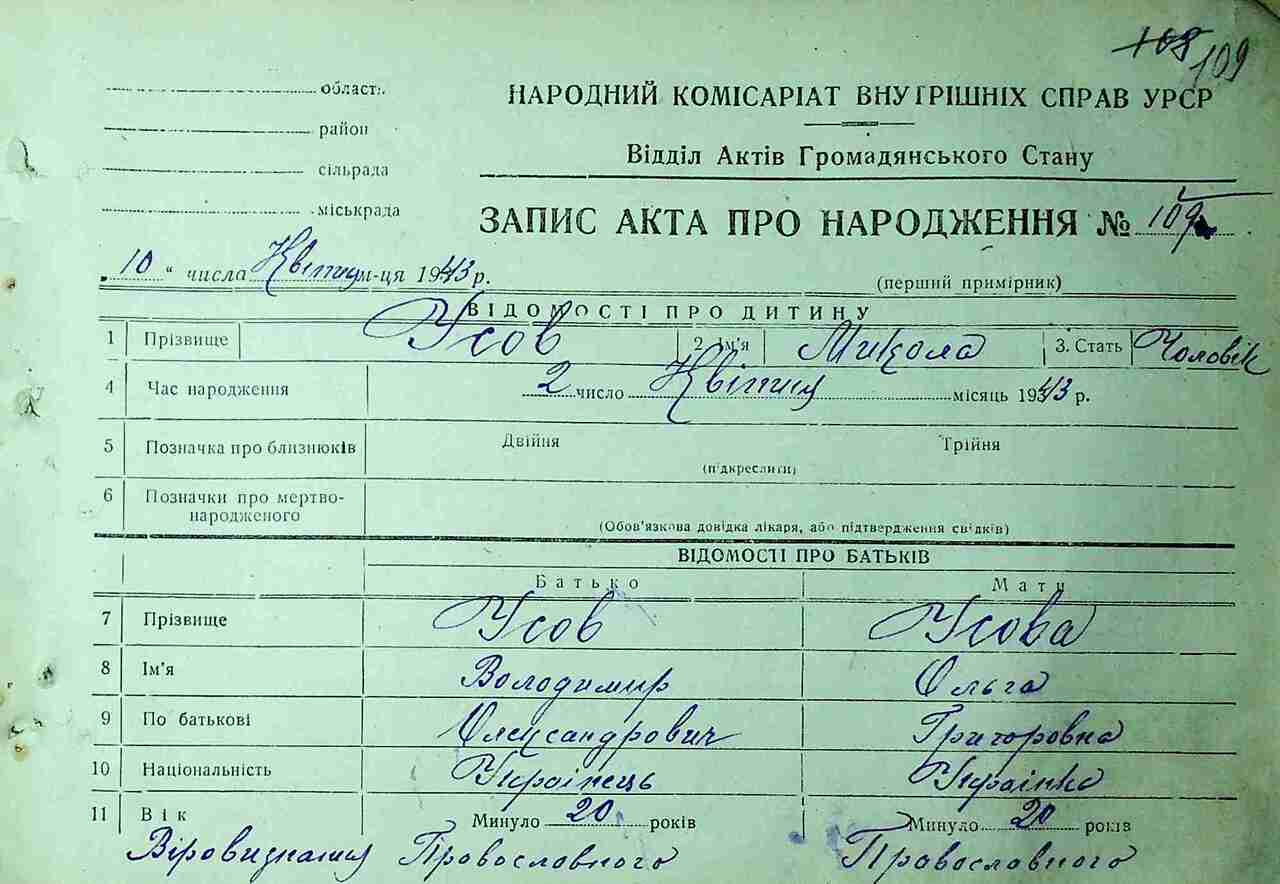 108 109
області
район
сільрада
міськрада
НАРОДНИЙ КОМІСАРІАТ ВНУТРІШНІХ СПРАВ УРСР
Відділ Актів Громадянського Стану
ЗАПИС АКТА ПРО НАРОДЖЕННЯ № 109
„10“ числа Квітня м-ця 1943 р.
(перший примірник)
ВІДОМОСТІ ПРО ДИТИНУ
1 Прізвище Усов 2 Ім'я Микола 3. Стать Чоловік
4 Час народження 2 число Квітня місяць 1943 р.
5 Позначка про близнюків Двійня Трійня
(підкреслити)
6 Позначки про мертво-
народженого
(Обов'язкова довідка лікаря, або підтвердження свідків)
ВІДОМОСТІ ПРО БАТЬКІВ
Батько Мати
7 Прізвище Усов Усова
8 Ім'я Володимир Ольга
9 По батькові Олександрович Григоровна
10 Національність Українець Українка
11 Вік Минуло 20 років Минуло 20 років
Віровизнання Православного Православного